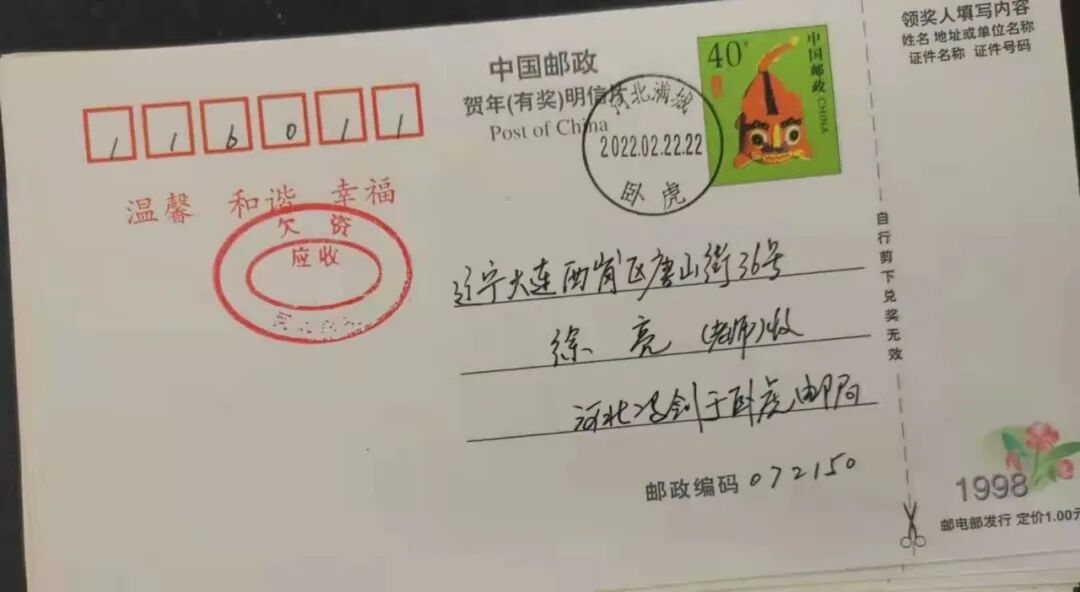 领奖人填写内容
姓名 地址或单位名称
证件名称 证件号码
中国邮政
贺年(有奖)明信片
Post of China
40分
中国邮政 CHINA
河北满城
2022.02.22.22
卧虎
116011
温馨 和谐 幸福
欠资
应收
辽宁大连西岗区唐山街36号
徐亮(老师)收
河北冯剑于卧虎邮局
邮政编码 072150
自行剪下兑奖无效
1998
邮电部发行 定价1.00元